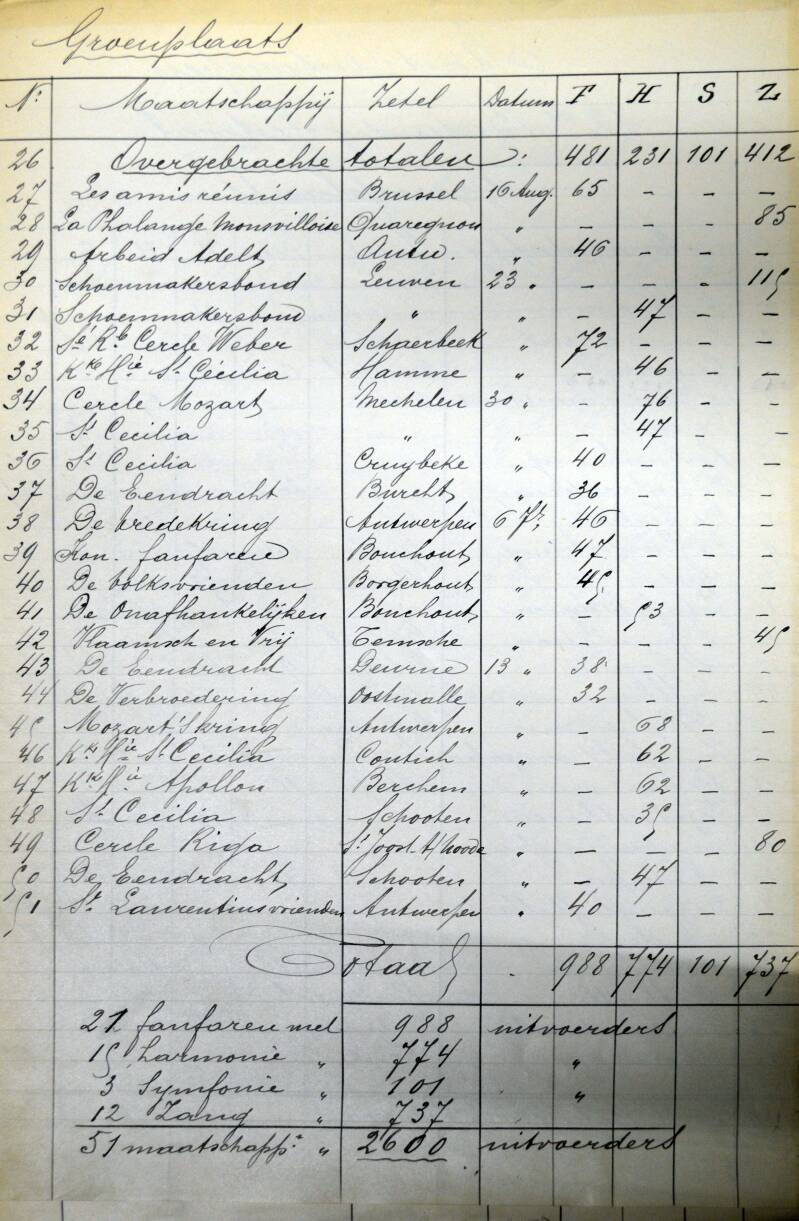 Groenplaats
N° Maatschappij Zetel Datum F H S Z
26 Overgebrachte totalen : 481 231 101 412
27 Les amis réunis Brussel 16 Aug. 65 – – –
28 La Phalange Monsvilloise Quaregnon " – – – 85
29 Arbeid Adelt Antw. " 46 – – –
30 Schoenmakersbond Leuven 23 " – – – 115
31 Schoenmakersbond " " – 47 – –
32 Sté Rle Cercle Weber Schaerbeek " 72 – – –
33 Kke Hie St Cécilia Hamme " – 46 – –
34 Cercle Mozart Mechelen 30 " – 76 – –
35 St Cecilia " " – 47 – –
36 St Cecilia Cruybeke " 40 – – –
37 De Eendracht Burcht " 36 – – –
38 De Vredekring Antwerpen 6 7r. 46 – – –
39 Kon. fanfaren Bouchout " 47 – – –
40 De Volksvrienden Borgerhout " 45 – – –
41 De Onafhankelijken Bouchout " – 53 – –
42 Vlaamsch en Vrij Temsche " – – – 45
43 De Eendracht Deurne 13 " 38 – – –
44 De Verbroedering Oostmalle " 32 – – –
45 Mozart's kring Antwerpen " – 68 – –
46 Kke Hie St Cecilia Contich " – 62 – –
47 Kke Hie Apollon Berchem " – 62 – –
48 St Cecilia Schooten " – 35 – –
49 Cercle Riga St Joost-t/Noode " – – – 80
50 De Eendracht Schooten " – 47 – –
51 St Laurentiusvrienden Antwerpen " 40 – – –
Totaal . 988 774 101 737
21 fanfaren met 988 uitvoerders
15 harmonie " 774 "
3 Symfonie " 101 "
12 Zang " 737
51 maatschapp.n " 2600 uitvoerders